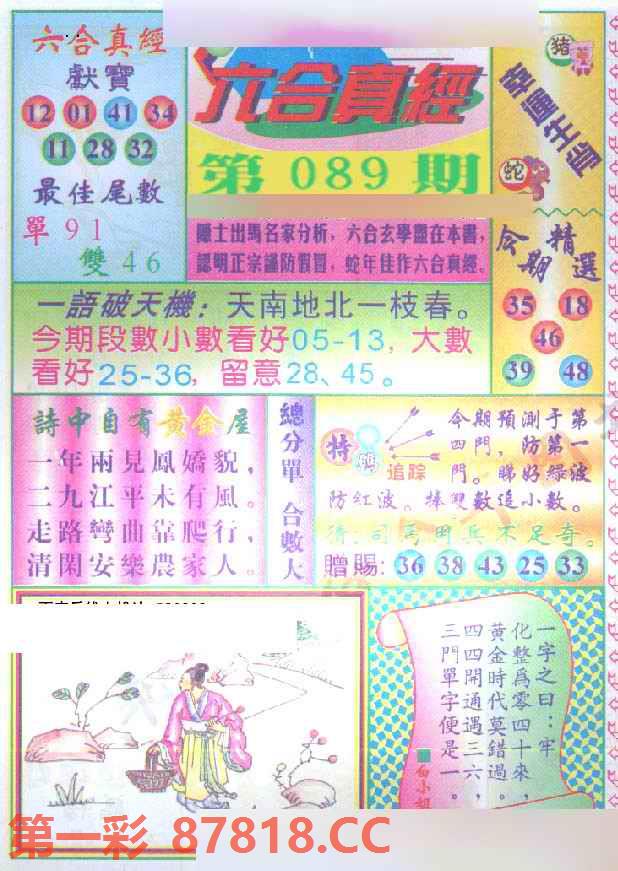 六合真經
獻寶
12 01 41 34
11 28 32
最佳尾數
單91
雙46
六合真經
第089期
隱士出馬名家分析，六合玄學盡在本書，
認明正宗謹防假冒，蛇年佳作六合真經。
猪
蛇
今期精選
35 18
46
39 48
一語破天機：天南地北一枝春。
今期段數小數看好05-13，大數
看好25-36，留意28、45。
詩中自有黃金屋
一年兩見鳳嬌貌，
二九江平未有風。
走路彎曲靠爬行，
清閑安樂農家人。
總分單 合數大
特碼
追踪
今期預測于第
四門，防第一
門。睇好綠波
防紅波。捧雙數追小數。
猜：司馬用兵不足奇。
贈賜：36 38 43 25 33
一字之曰：牢
化整爲零四十來，
黃金時代莫錯過。
四四開通遇三六，
三門單字便是一。
第一彩 87818.CC